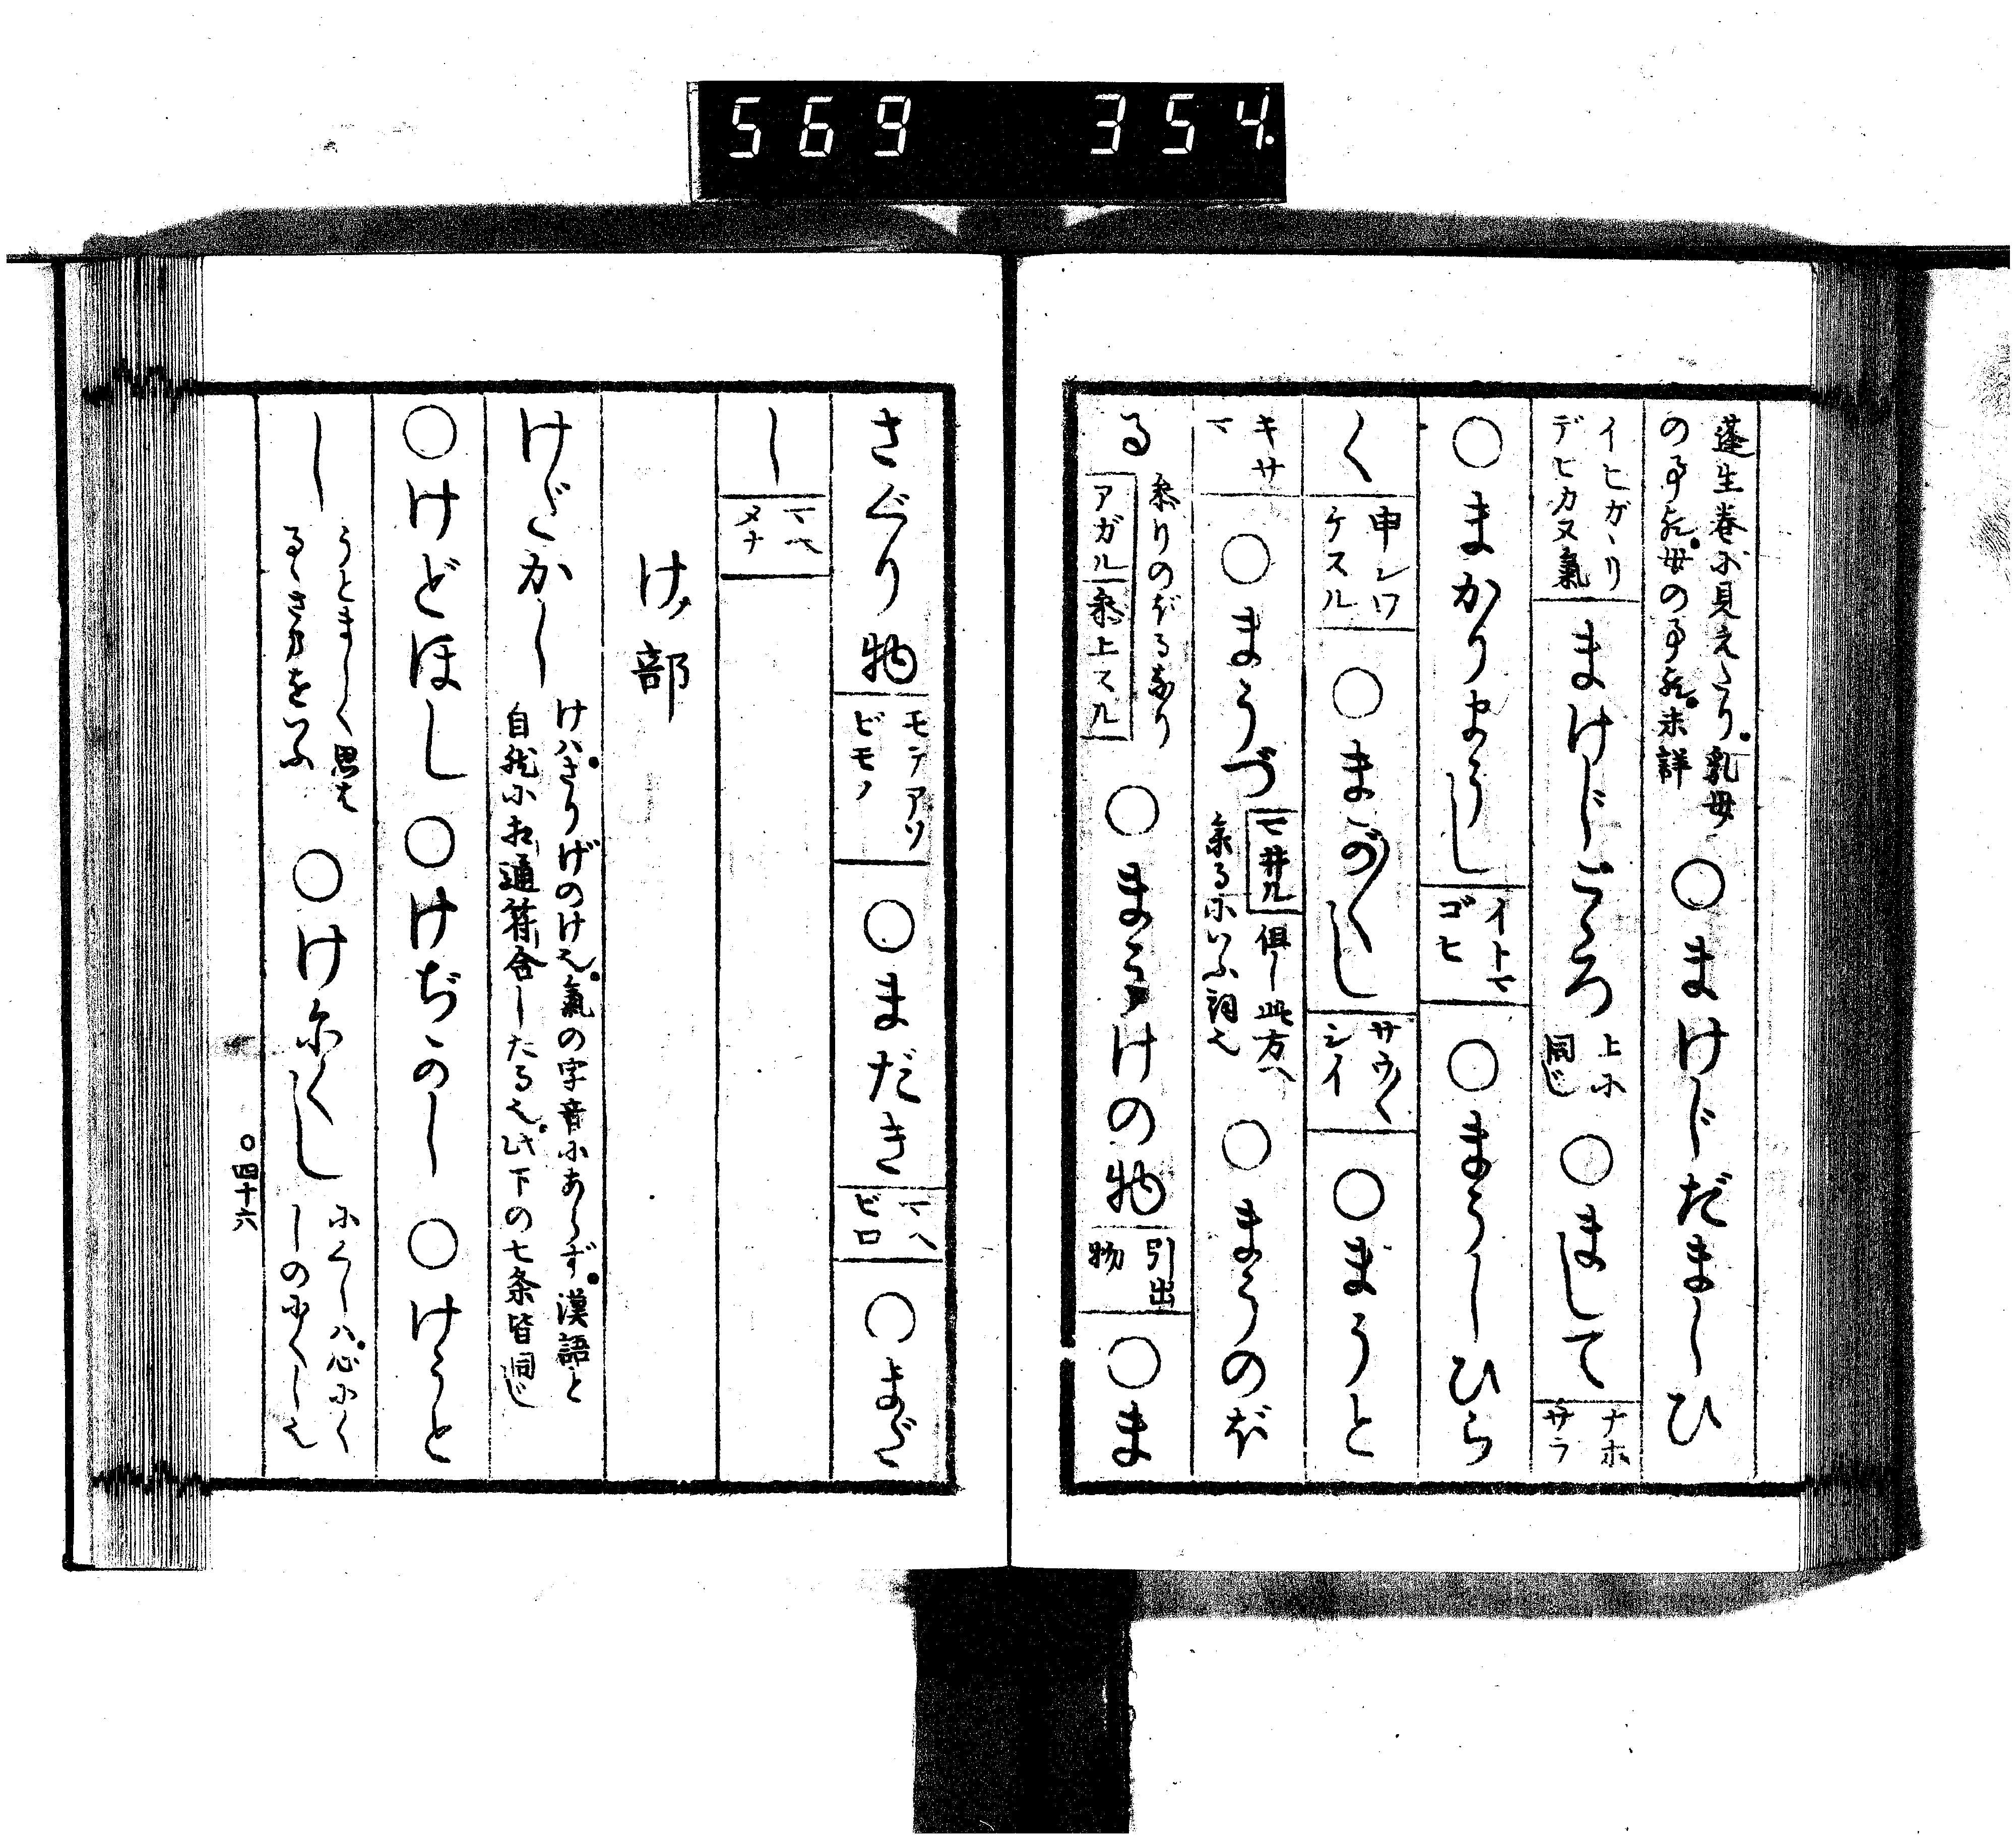 569 354.
蓬生巻に見えたり。乳母
の事也。母の事也。未詳
○まけじだましひ
イヒガヽリ
デヒカヌ氣
まけじごころ
上に
同じ
○まして
ナホ
サラ
○まかりまうし
イトマ
ゴヒ
○まうしひら
く
申シワ
ケスル
○まが〳〵し
サウ〴〵
シイ
○まうと
キサ
マ
○まうづ
マ井ル
但し此方へ
来るにいふ詞也
○まうのぼ
る
参りのぼるなり
アガル
参上スル
○まうけの物
引出
物
○ま
さぐり物
モテアソ
ビモノ
○まだき
マヘ
ビロ
○まど
し
け部
けぢかし
けハさりげのけ也。氣の字音にあらず。漢語と
自然にお通符合したる也。此下の七条皆同じ
○けどほし
○けぢかし
○けうと
し
うとましく思は
るヽさまをいふ
○けにくし
にくしハ。心にく
しのにくし也
○四十六